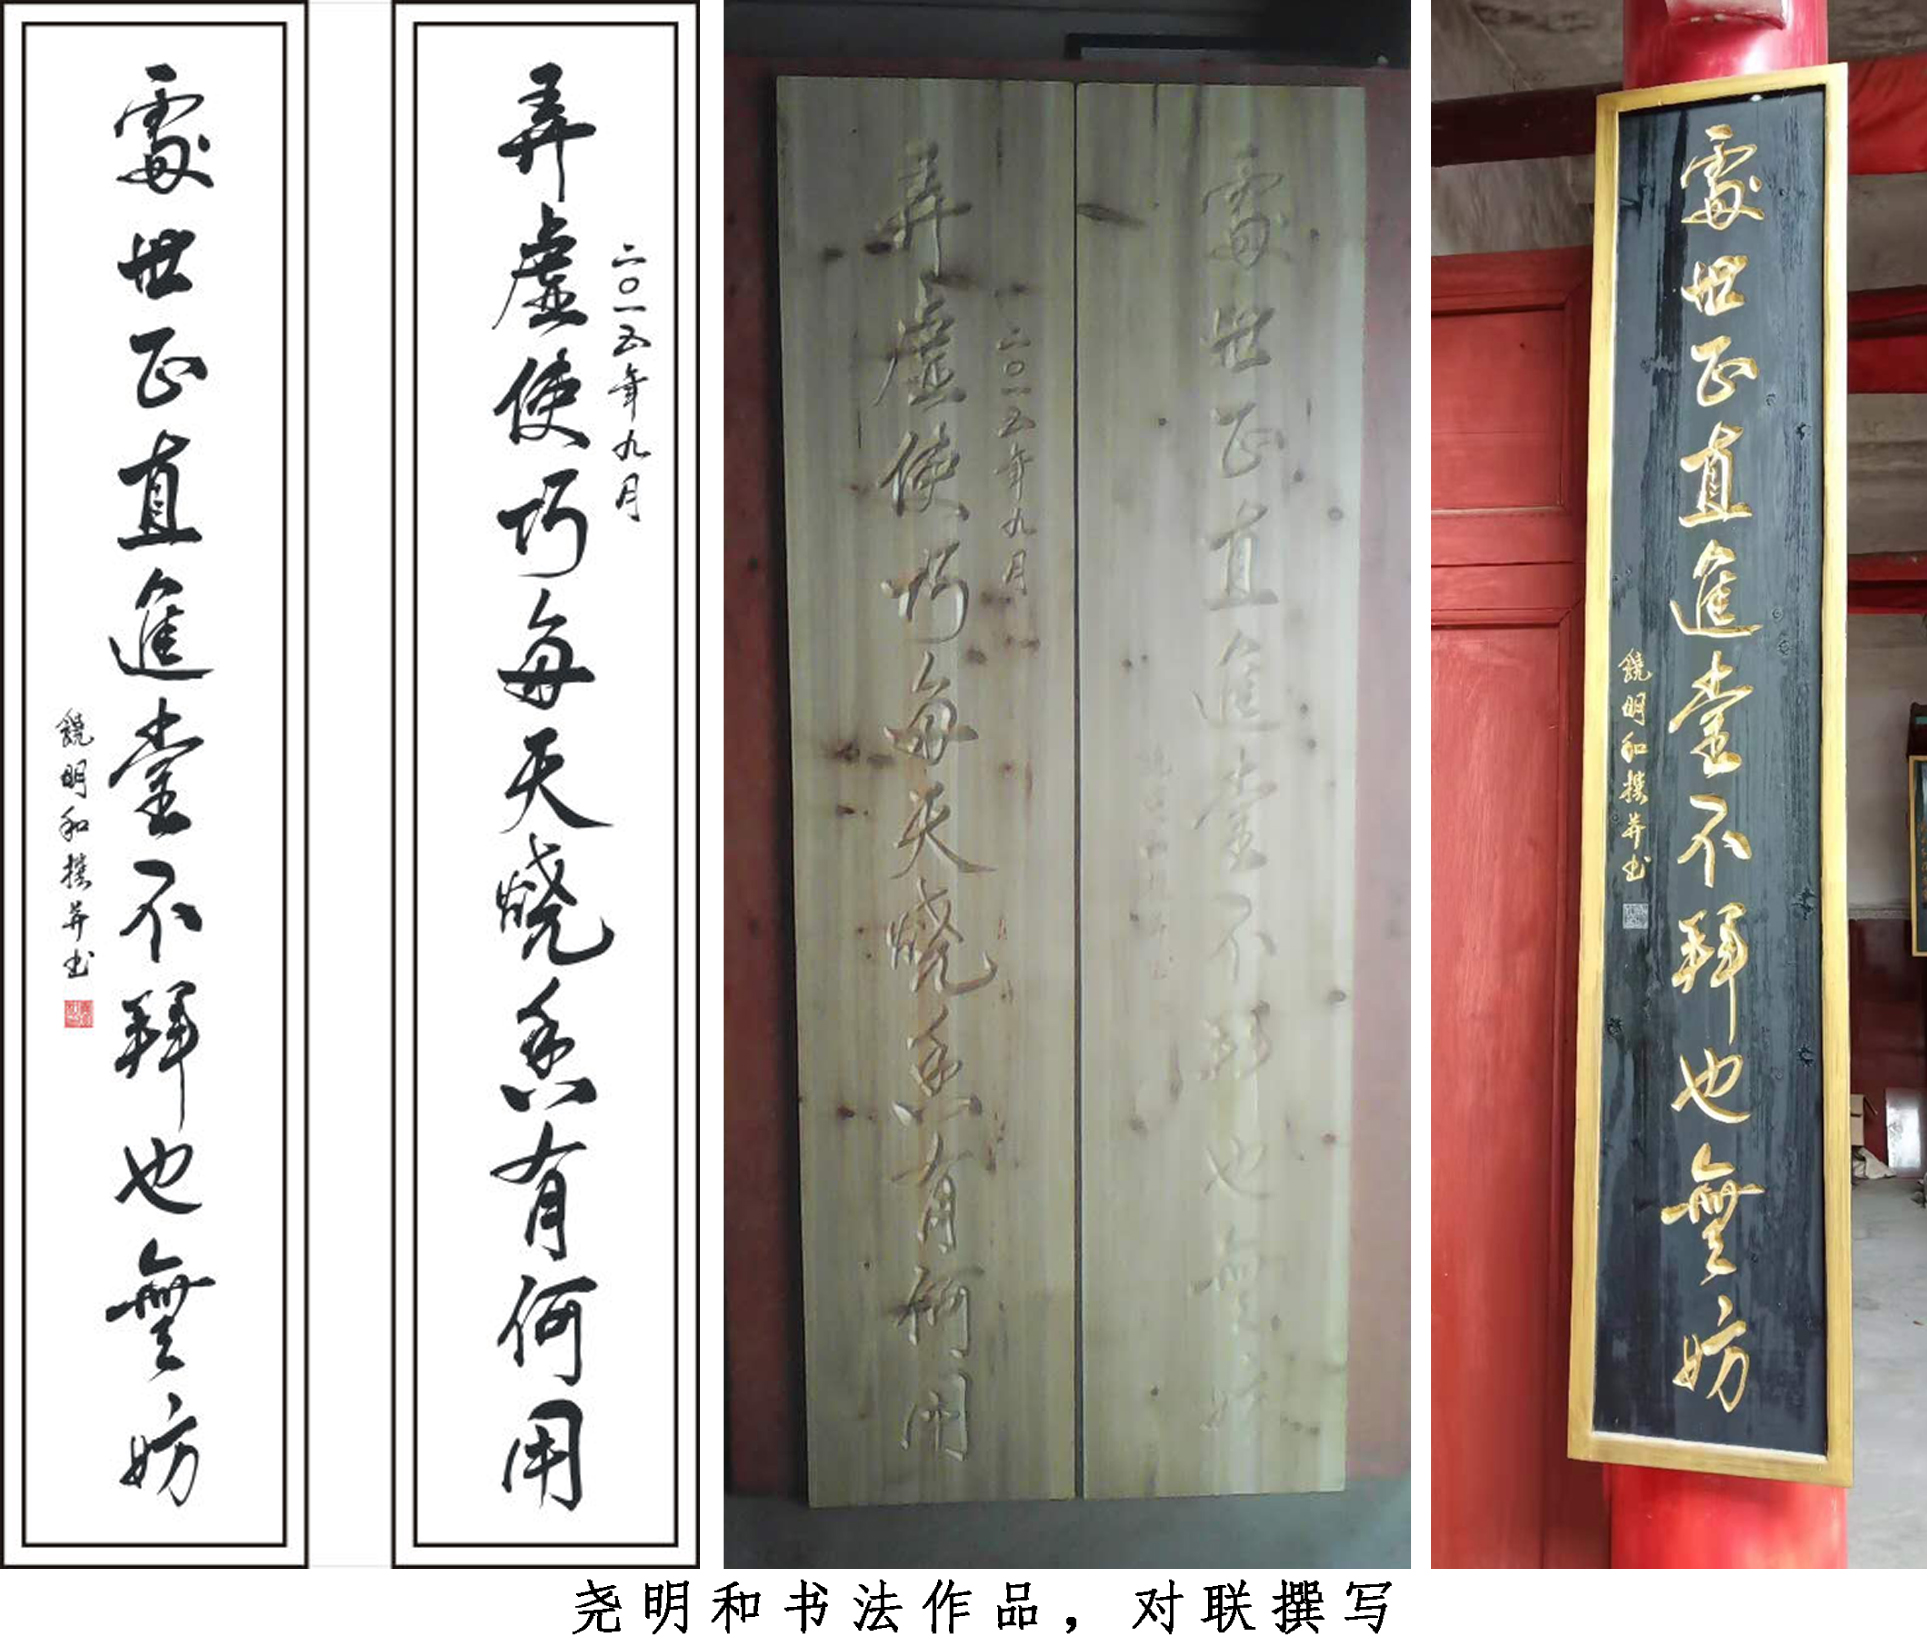 弄虚使巧每天燒香有何用
二〇一五年九月
處世正直進堂不拜也無妨
饒明和撰并书
處世正直進堂不拜也無妨
弄虚使巧每天燒香有何用
二〇一五年九月
處世正直進堂不拜也無妨
饒明和撰并书
尧明和书法作品，对联撰写